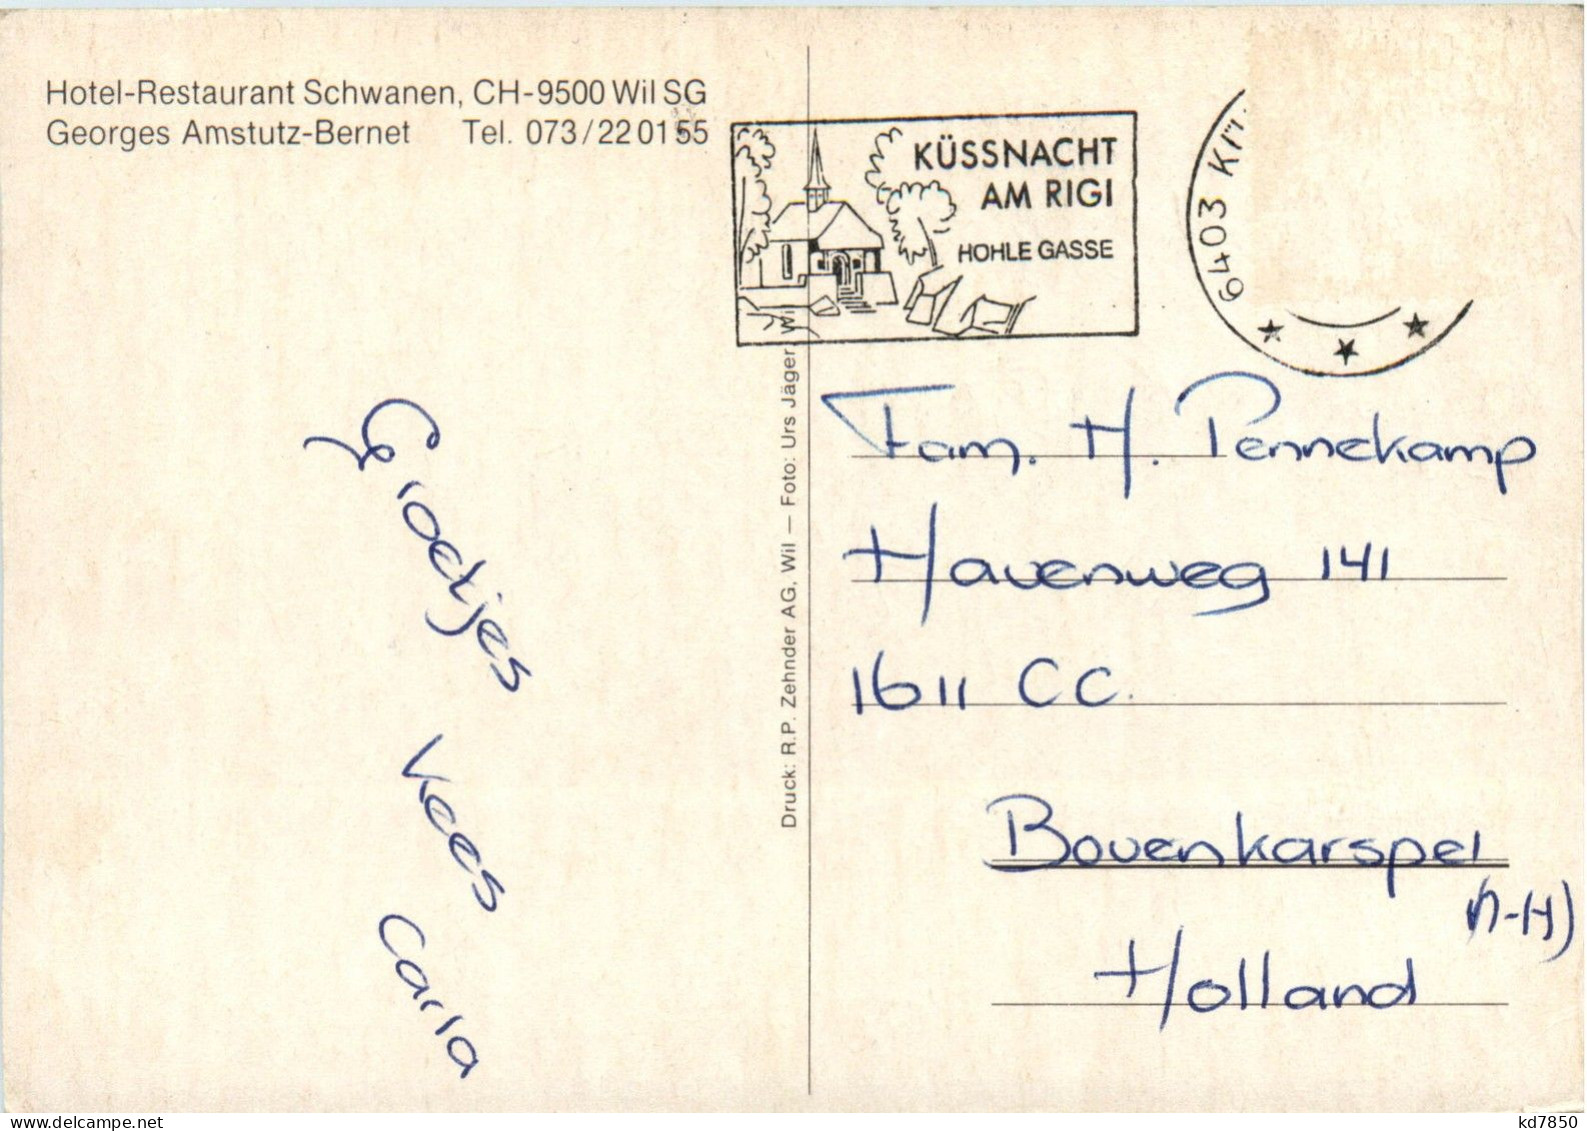 Hotel-Restaurant Schwanen, CH-9500 Wil SG
Georges Amstutz-Bernet Tel. 073/22 01 55
KÜSSNACHT
AM RIGI
HOHLE GASSE
6403
Druck: R.P. Zehnder AG, Wil — Foto: Urs Jäger, Wil
Groetjes
Kees
Carla
Fam. H. Pennekamp
Havenweg 141
1611 CC.
Bovenkarspel
(N-H)
Holland
kd7850